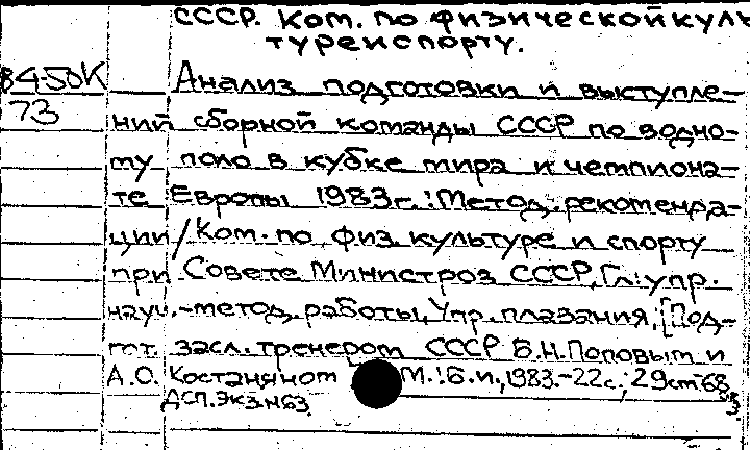 СССР. Ком. по физической куль
туре и спорту.
84-50К
73
Анализ подготовки и выступле-
ний сборной команды СССР по водно-
му поло в кубке мира и чемпиона-
те Европы 1983г.: Метод. рекоменда-
ции/Ком. по физ. культуре и спорту
при Совете Министров СССР, Гл. упр.
науч.-метод. работы, Упр. плавания; [Под-
гот. засл. тренером СССР Б.Н. Поповым и
А.О. Костаняном М.: Б.и., 1983.-22с.; 29см-68
ДСП. Экз. N63